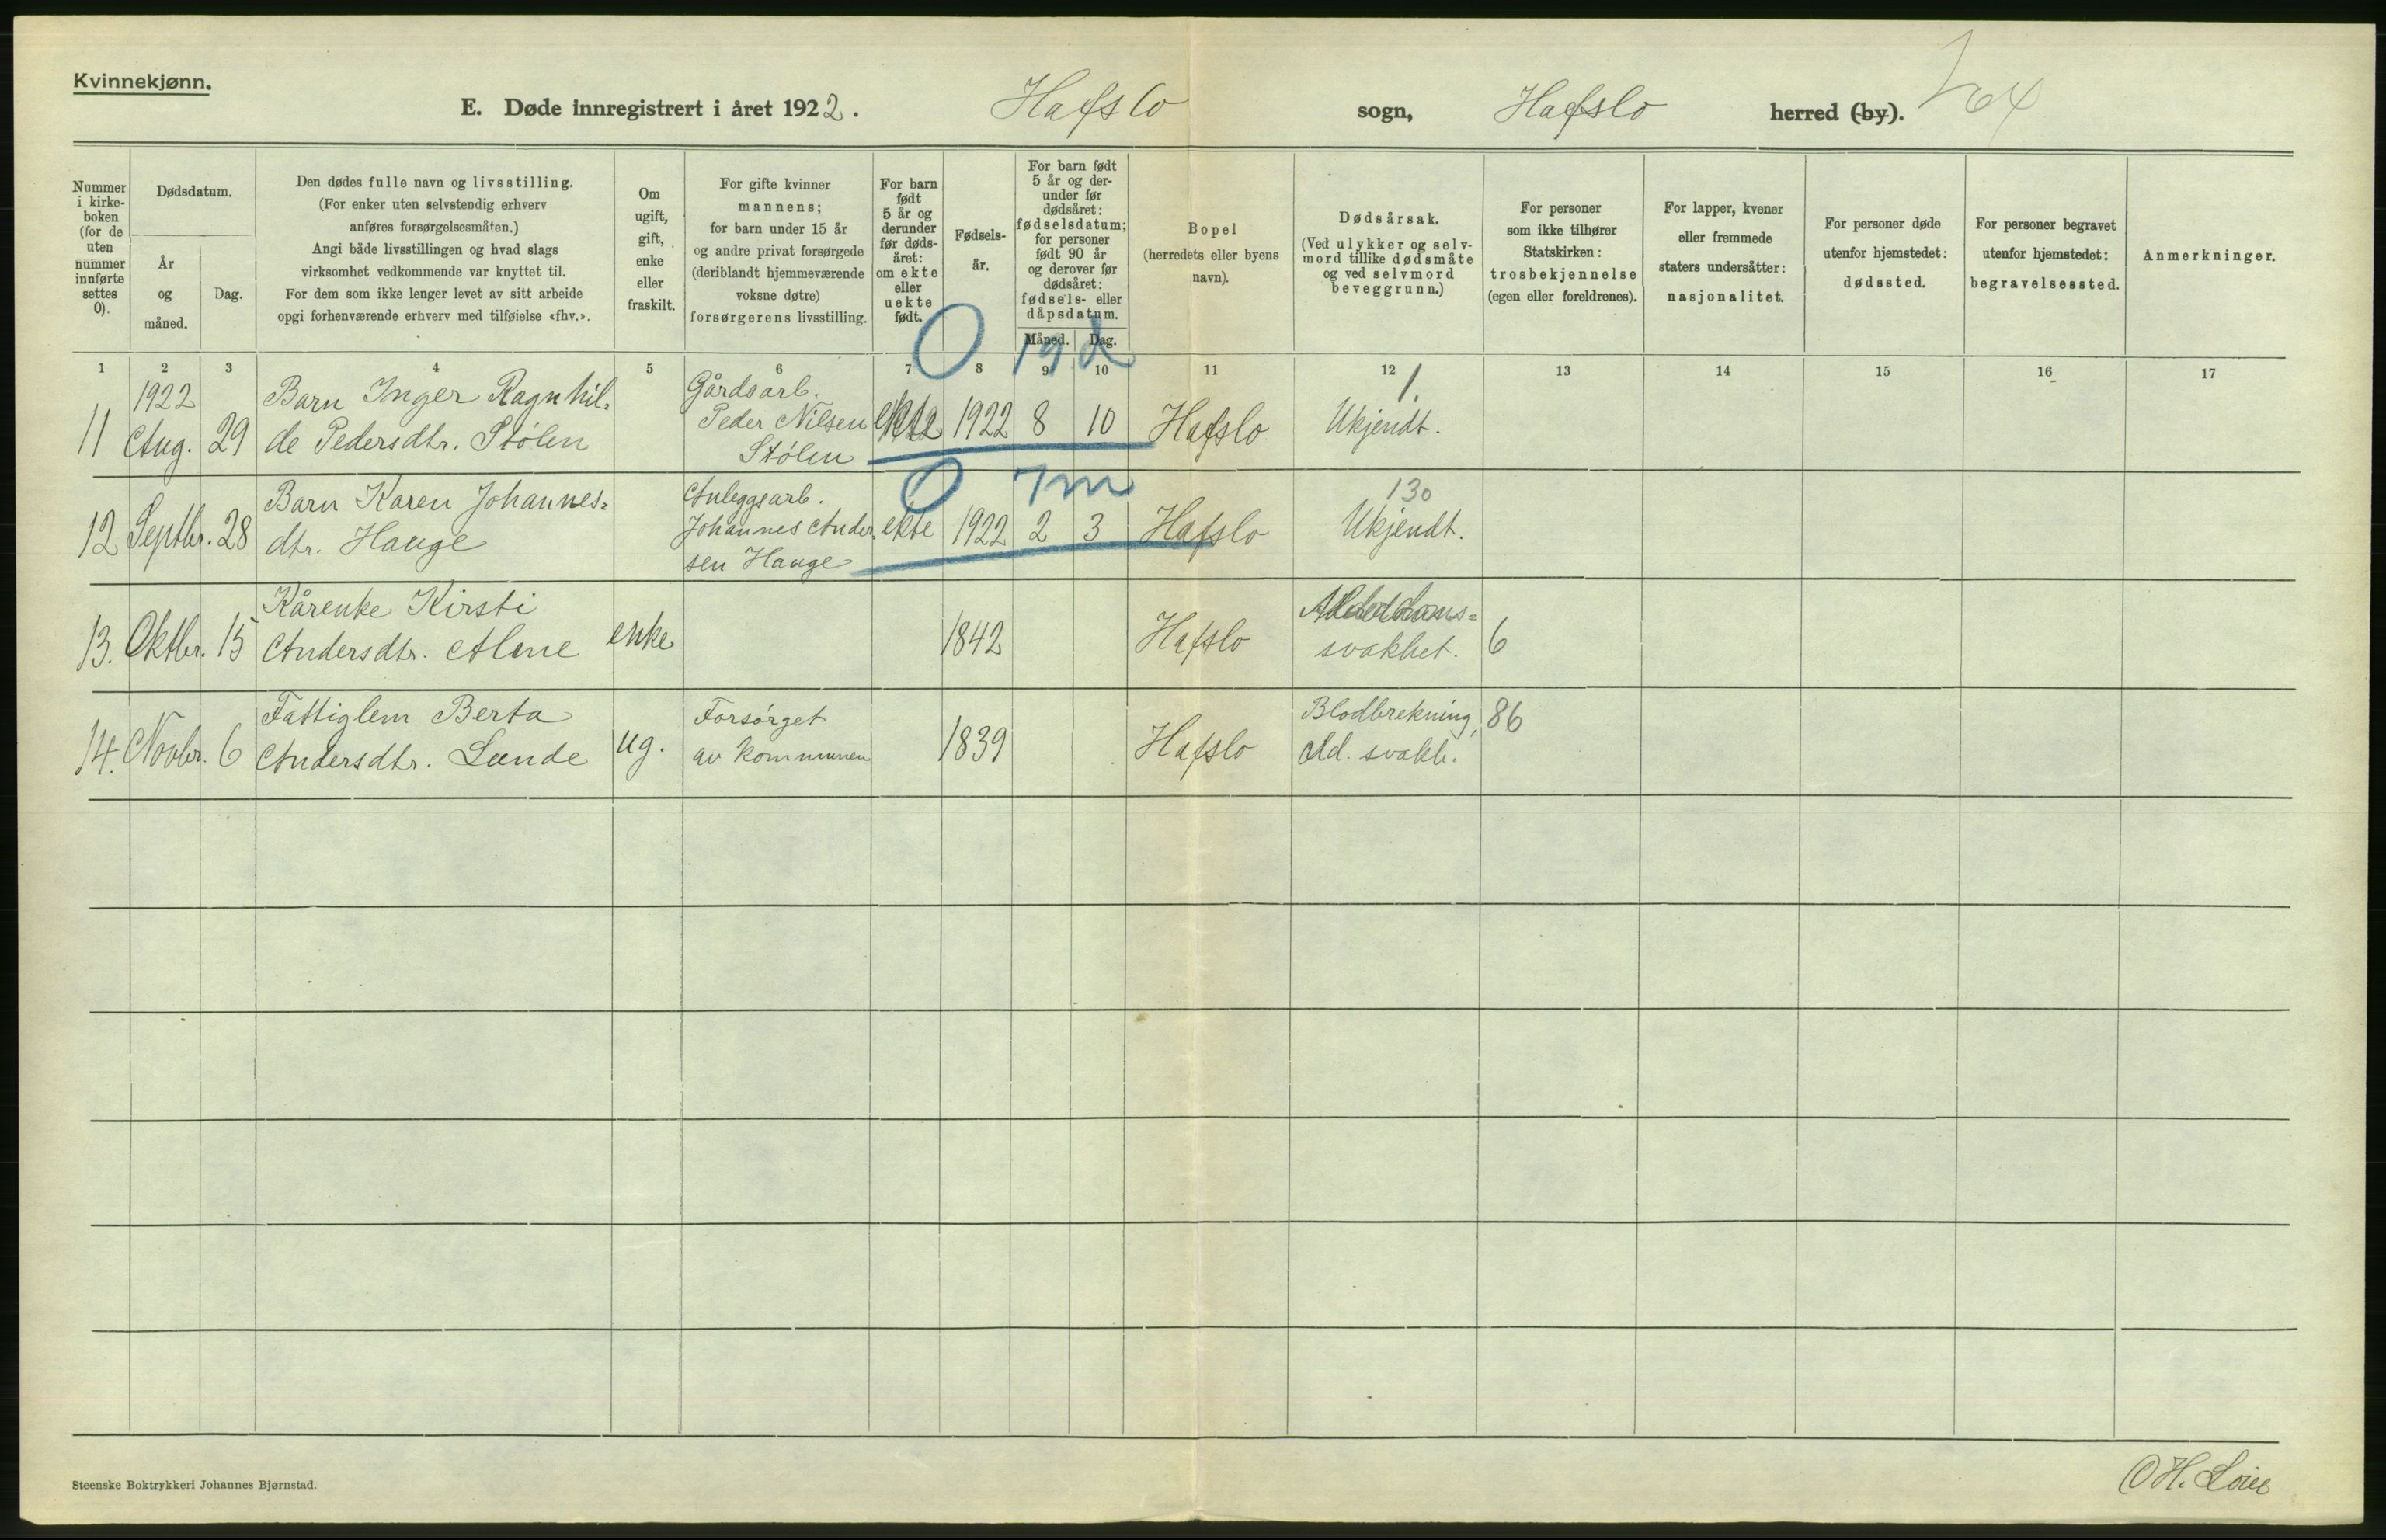 Kvinnekjønn.
E. Døde innregistrert i året 1922. Hafslo sogn, Hafslo herred (by).
Nummer i kirke-boken (for de uten nummer innførte settes 0).
Dødsdatum.
År og måned.
Dag.
Den dødes fulle navn og livsstilling.
(For enker uten selvstendig erhverv
anføres forsørgelsesmåten.)
Angi både livsstillingen og hvad slags
virksomhet vedkommende var knyttet til.
For dem som ikke lenger levet av sitt arbeide
opgi forhenværende erhverv med tilføielse «fhv.».
Om ugift, gift, enke eller fraskilt.
For gifte kvinner
mannens;
for barn under 15 år
og andre privat forsørgede
(deriblandt hjemmeværende
voksne døtre)
forsørgerens livsstilling.
For barn født 5 år og derunder før døds-året: om ekte eller uekte født.
Fødsels-år.
For barn født
5 år og der-
under før
dødsåret:
fødselsdatum;
for personer
født 90 år
og derover før
dødsåret:
fødsels- eller
dåpsdatum.
Måned. Dag.
Bopel
(herredets eller byens
navn).
Dødsårsak.
(Ved ulykker og selv-
mord tillike dødsmåte
og ved selvmord
beveggrunn.)
For personer
som ikke tilhører
Statskirken:
trosbekjennelse
(egen eller foreldrenes).
For lapper, kvener
eller fremmede
staters undersåtter:
nasjonalitet.
For personer døde
utenfor hjemstedet:
dødssted.
For personer begravet
utenfor hjemstedet:
begravelsessted.
Anmerkninger.
0 19 d
1 2 3 4 5 6 7 8 9 10 11 12 13 14 15 16 17
1922 Barn Inger Ragnhil= Gårdsarb. 1.
11 Aug. 29 de Pedersdtr. Stølen Peder Nilsen ekte 1922 8 10 Hafslo Ukjendt.
Stølen
0 7m
Barn Karen Johannes= Anleggsarb. 130
12 Septbr. 28 dtr. Hauge Johannes Ander= ekte 1922 2 3 Hafslo Ukjendt.
sen Hauge
Kårenke Kirsti Alderdoms=
13. Oktbr. 15 Andersdtr. Alme enke 1842 Hafslo svakhet. 6
Fattiglem Berta Forsørget Blodbrekning, 86
14. Novbr. 6 Andersdtr. Lunde ug. av kommunen 1839 Hafslo Ald. svakh.
Steenske Boktrykkeri Johannes Bjørnstad.